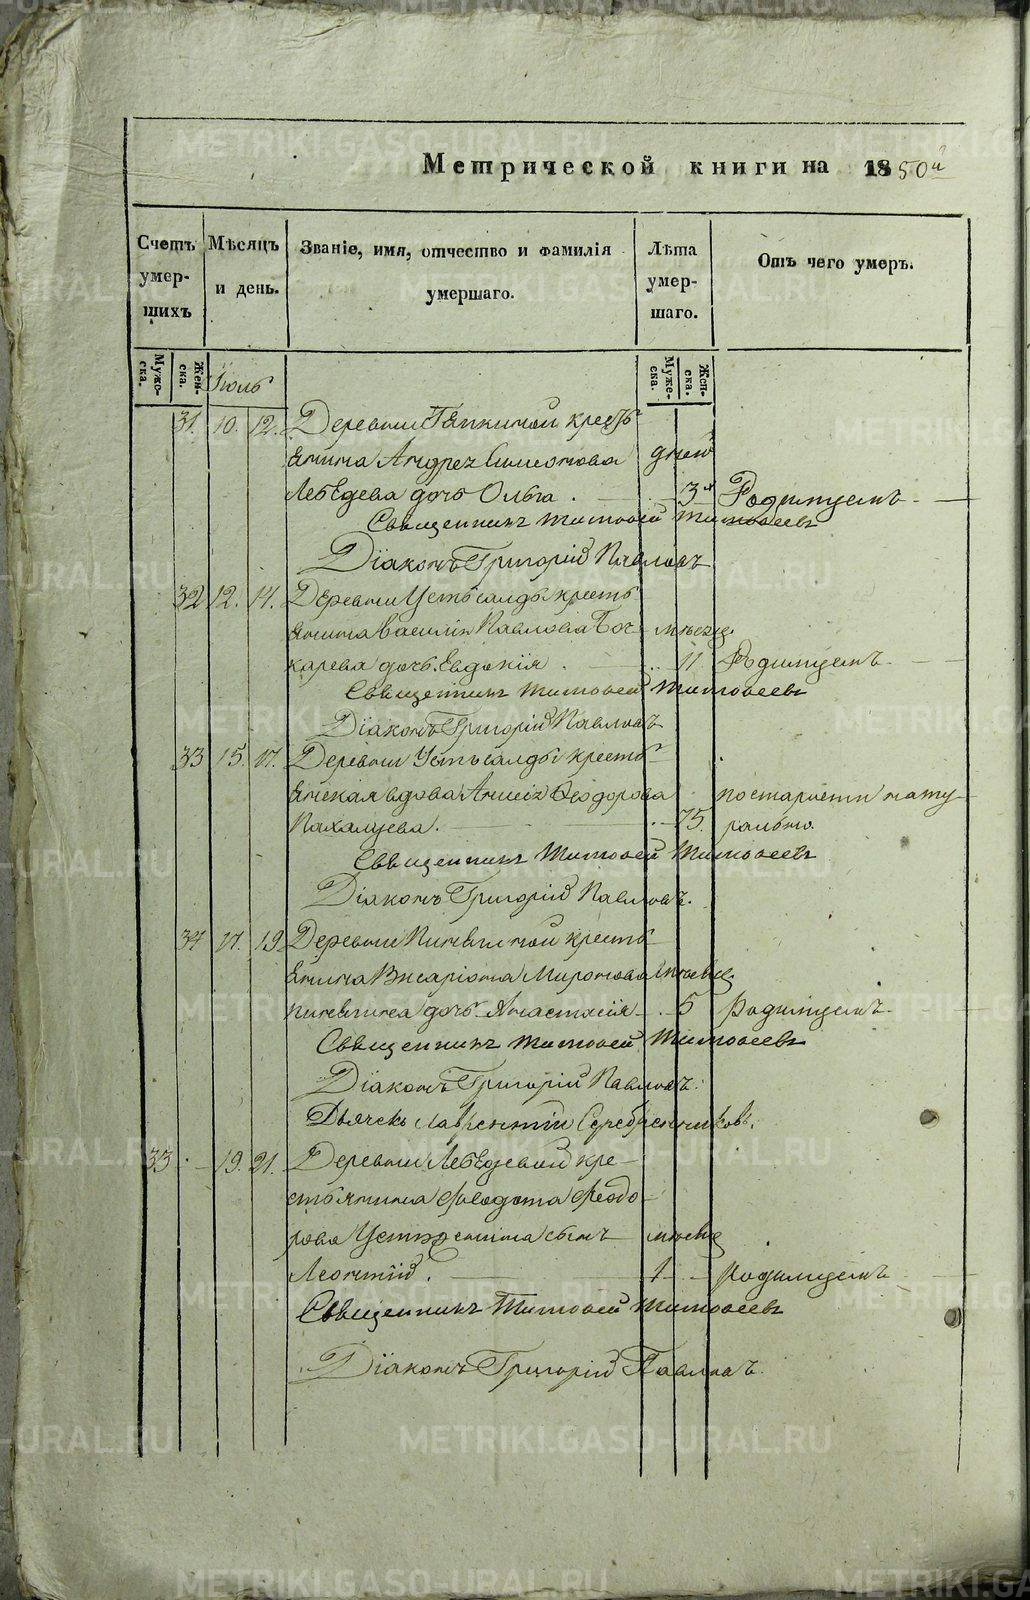 Метрической книги на 1850й
Счетъ умершихъ
Мѣсяцъ и день.
Званіе, имя, отчество и фамилія умершаго.
Лѣта умершаго.
Отъ чего умеръ.
Мужеска.
Женска.
Мужеска.
Женска.
Іюль
31. 10. 12. Деревни кресть
янина Андрея Симеонова дней
Лебедева дочь Ольга. 3х Родимцемъ
Священникъ Тимоѳей Тимоѳеевъ
Діаконъ Григорій Павловъ
32 12. 14. Деревни Усть салды кресть
янина Василія Павлова Боч- мѣсяц.
карева дочь Евдокія. 11 Родимцемъ
Священникъ Тимоѳей Тимоѳеевъ
Діаконъ Григорій Павловъ
33 15. 17. Деревни Усть салды кресть
янская вдова Ѳеодорова по старости нату
Пахалуева. 75. рально.
Священникъ Тимоѳей Тимоѳеевъ
Діаконъ Григорій Павловъ.
34 17. 19. Деревни кресть
янина Висаріона Миронова мѣсяц.
дочь Анастасія. 5 Родимцемъ
Священникъ Тимоѳей Тимоѳеевъ
Діаконъ Григорій Павловъ.
Дьячекъ Лаврентій Серебренниковъ.
33 19. 21. Деревни Лебедевой кре
стьянина Ѳеодо
рова сынъ мѣсяц
Леонтій. 1 Родимцемъ
Священникъ Тимоѳей Тимоѳеевъ
Діаконъ Григорій Павловъ.
METRIKI.GASO-URAL.RU